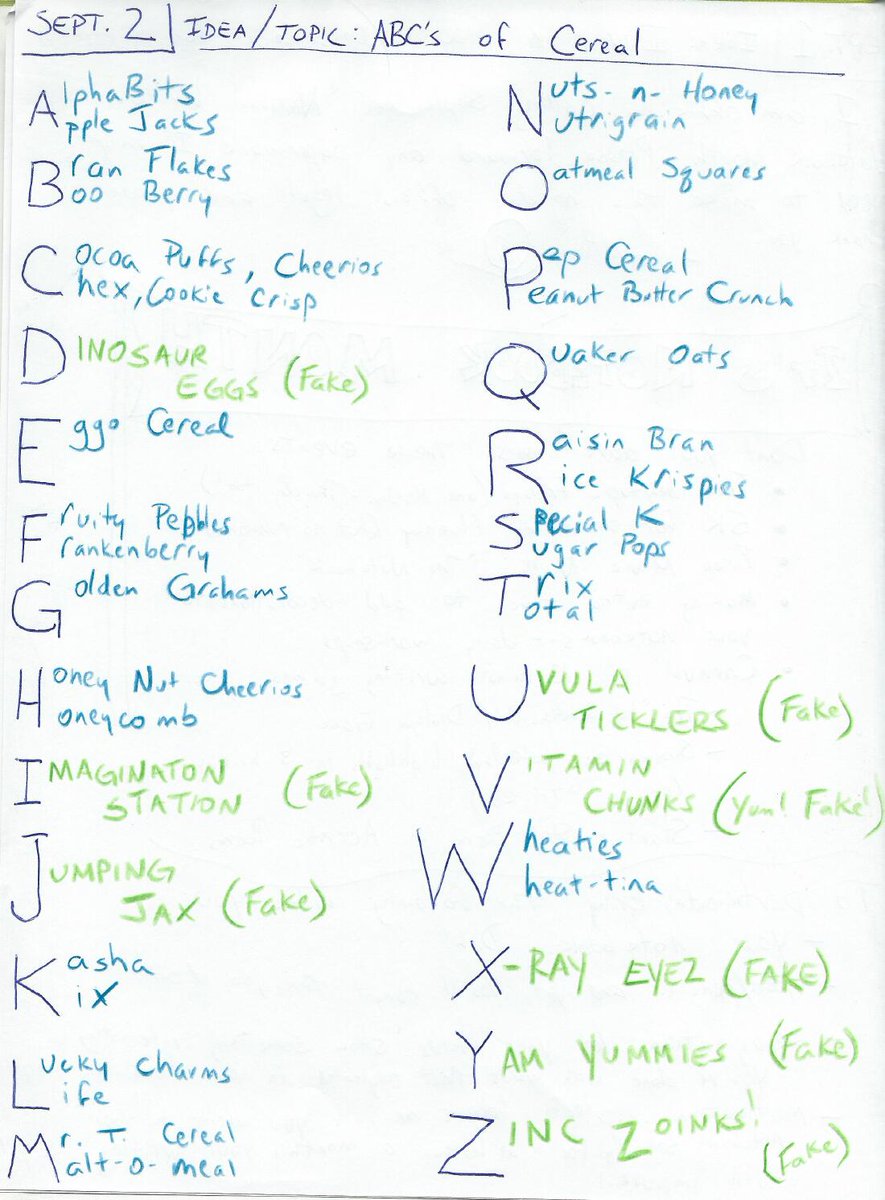 SEPT. 2 | IDEA/TOPIC: ABC's of Cereal
AlphaBits
Apple Jacks
Bran Flakes
Boo Berry
Cocoa Puffs, Cheerios
Chex, Cookie Crisp
DINOSAUR
EGGS (Fake)
Eggo Cereal
Fruity Pebbles
Frankenberry
Golden Grahams
Honey Nut Cheerios
Honeycomb
IMAGINATON
STATION (Fake)
JUMPING
JAX (Fake)
Kasha
Kix
Lucky Charms
Life
Mr. T. Cereal
Malt-o-meal
Nuts-n-Honey
Nutrigrain
Oatmeal Squares
Pep Cereal
Peanut Butter Crunch
Quaker Oats
Raisin Bran
Rice Krispies
Special K
Sugar Pops
Trix
Total
UVULA
TICKLERS (Fake)
VITAMIN
CHUNKS (Yum! Fake!)
Wheaties
Wheat-tina
X-RAY EYEZ (FAKE)
YAM YUMMIES (Fake)
ZINC ZOINKS!
(Fake)